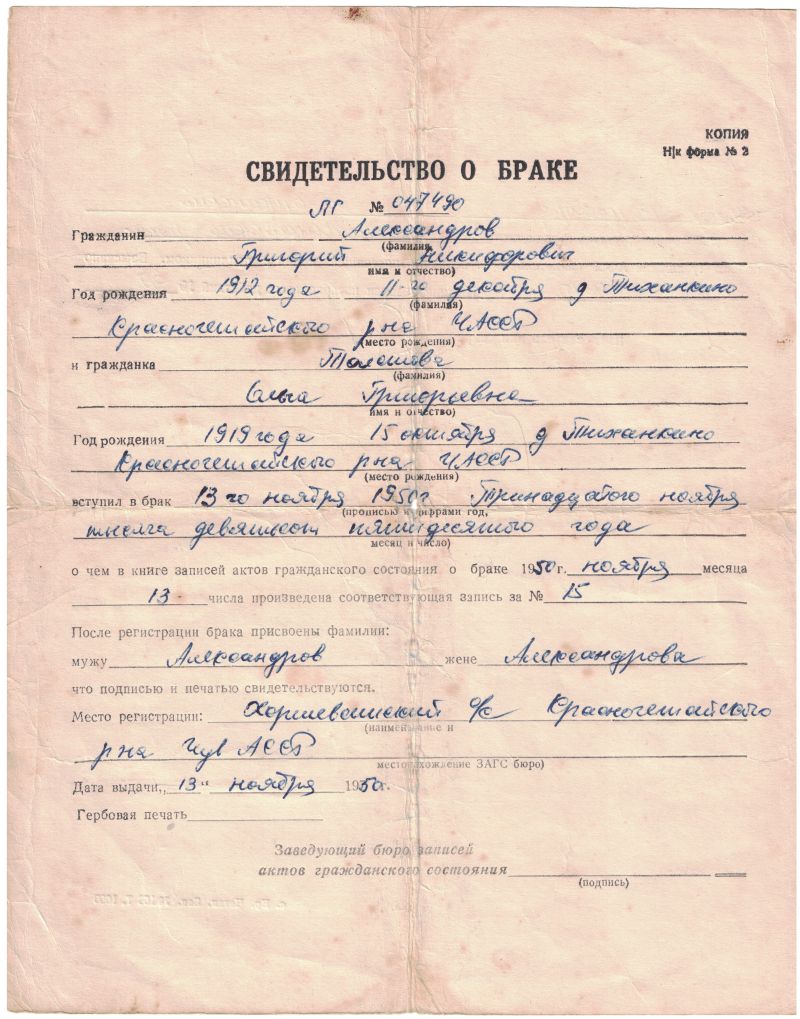 КОПИЯ
Н|к форма № 2
СВИДЕТЕЛЬСТВО О БРАКЕ
ЛГ № 047490
Гражданин Александров
(фамилия
Григорий Никифорович
имя и отчество)
Год рождения 1912 года 11-го декабря д Тиханкино
(фамилия)
Красночетайского р на ЧАССР
(место рождения)
и гражданка
(фамилия)
Ольга Григорьевна
имя и отчество)
Год рождения 1919 года 15 октября д Тиханкино
Красночетайского р на ЧАССР
(место рождения)
вступил в брак 13 го ноября 1950 г Тринадцатого ноября
(прописью и цифрами год,
тысяча девятьсот пятидесятого года
месяц и число)
о чем в книге записей актов гражданского состояния о браке 1950 г. ноября месяца
13 числа произведена соответствующая запись за № 15
После регистрации брака присвоены фамилии:
мужу Александров жене Александрова
что подписью и печатью свидетельствуются.
Место регистрации: с/с Красночетайского
(наименование и
р на Чув АССР
местонахождение ЗАГС бюро)
Дата выдачи „ 13 " ноября 1950 г.
Гербовая печать
Заведующий бюро записей
актов гражданского состояния
(подпись)